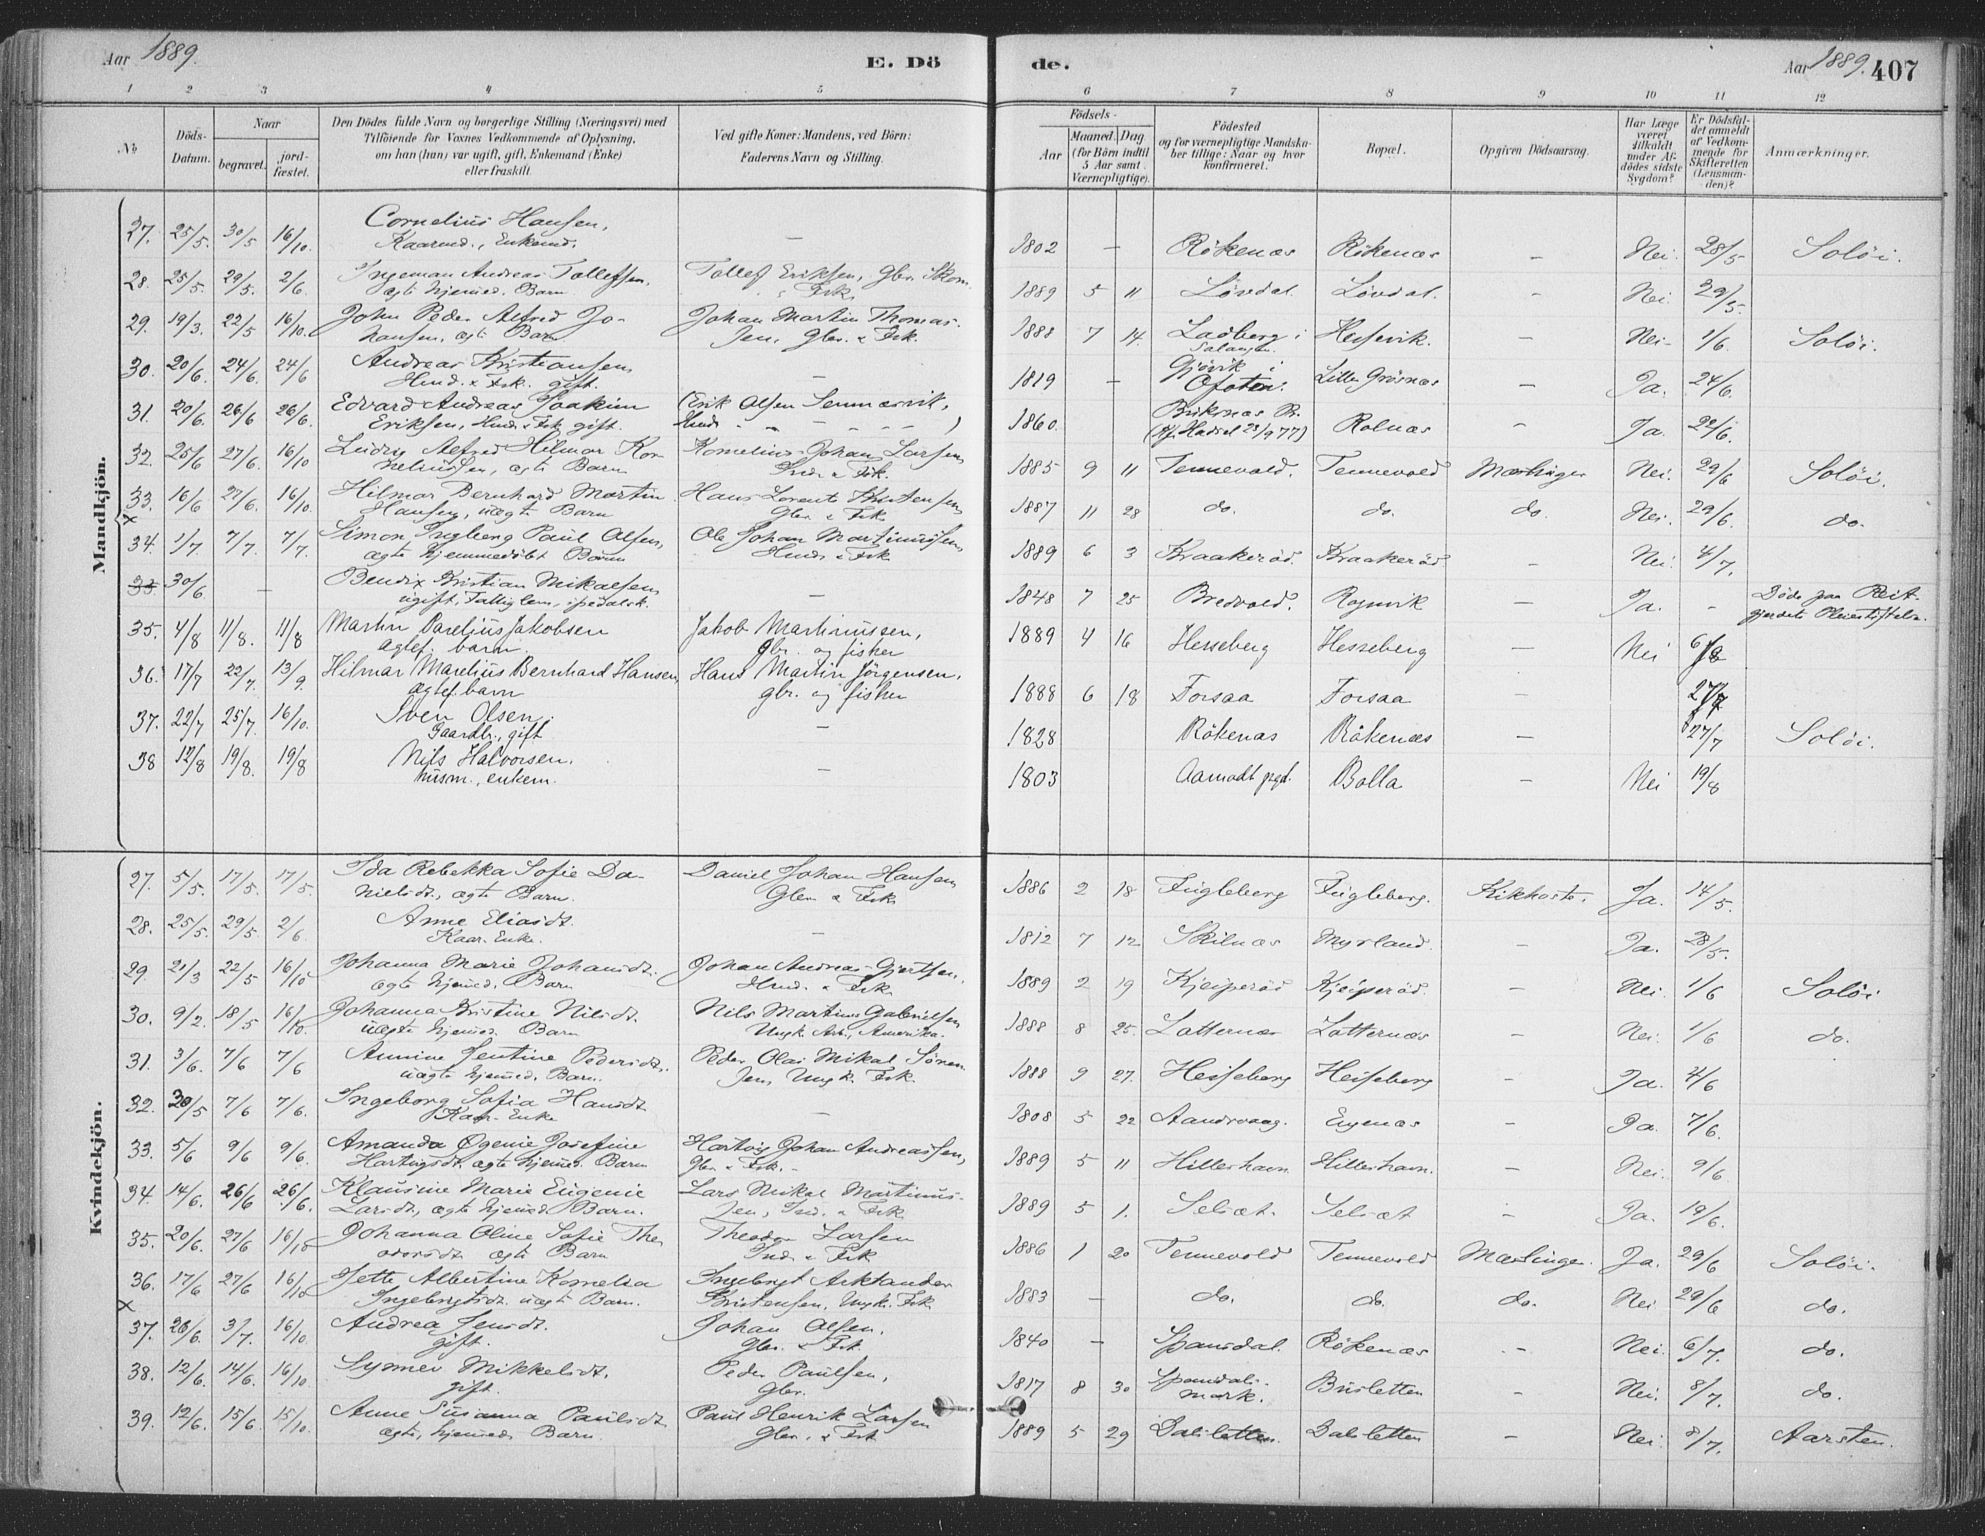 Aar 1889.
E. Dö
de.
Aar 1889. 407
1 2 3 4 5 6 7 8 9 10 11 12
No Döds-Datum. Naar begravet. jordfæstet. Den Dödes fulde Navn og borgerlige Stilling (Næringsvei) med Tilföiende for Voxnes Vedkommende af Oplysning, om han (hun) var ugift, gift, Enkemand (Enke) eller fraskilt. Ved gifte Koner: Mandens, ved Börn: Faderens Navn og Stilling. Födsels- Aar Maaned. Dag (for Börn indtil 5 Aar samt Værnepligtige). Födested og for værnepligtige Mandskaber tillige: Naar og hvor konfirmeret. Bopæl. Opgiven Dödsaarsag. Har Læge været tilkaldt under Afdödes sidste Sygdom? Er Dödsfaldet anmeldt af Vedkommende for Skifteretten (Lensmanden)? Anmærkninger.
Mandkjön.
27. 25/5. 30/5 16/10. Cornelius Hansen, Kaarmd., Enkemd. — 1802 — Rökenæs Rökenæs — Nei. 28/5 Soløi.
28. 25/5. 29/5. 2/6. Ingeman Andreas Tollefsen, ægte hjemmed. Barn Tollef Eriksen, Gbr. Skom. & Fisk. 1889 5 11 Lövdal. Lövdal. — Nei. 29/5.
29. 19/3. 22/5 16/10. John Peder Alfred Johansen, ægte Barn Johan Martin Thomassen, Gbr. & Fsk. 1888 7 14. Ladberg i Salangen Hessevik. — Nei- 1/6. Soløi.
30. 20/6. 24/6. 24/6 Andreas Kristiansen, Hmd. & Fsk. gift. — 1819 — Gjövik i Ofoten. Lille Grösnæs — Ja. 24/6.
31. 20/6. 26/6 26/6. Edvard Andreas Joakim Eriksen, Hmd. & Fsk. gift. (Erik Olsen Sennæsvik, Hmd. ) 1860. (kf. Hadsel 23/9 77) Rolnæs — Ja. 22/6.
32. 25/6 27/6. 16/10 Ludvig Alfred Hilmar Korneliussen, ægte Barn Kornelius Johan Larsen, Ind. & Fsk. 1885 9 11 Tennevold. Tennevold Mæslinger Nei. 29/6 Soløi.
33. 16/6 27/6. 16/10 Hilmar Bernhard Martin Hansen, uægte Barn Hans Lorents Kristensen, Gbr. & Fsk. 1887 11 28 do. do. do. Nei. 29/6. do.
34. 1/7. 7/7. 7/7. Simon Ingberg Paul Olsen, ægte hjemmedöbt Barn Ole Johan Martinussen, Hmd. & Fsk 1889 6 3 Kraakeröd. Kraakeröd — Nei. 4/7.
35 30/6. — Bendix Kristian Mikalsen, ugift, Fattiglem, spedalsk. 1848 7 25 Bredvold. Rognvik — Ja. - Döde paa Reitgjerdets Pleiestiftelse.
35. 4/8 11/8. 11/8 Martin Parelius Jakobsen ægtef. barn. Jakob Martinussen, gbr. og fisker 1889 4 16 Hesseberg Hesseberg — Nei 6/8
36. 17/7 22/7. 13/9. Hilmar Marelius Bernhard Hansen, ægtef. barn Hans Martin Jörgensen, gbr. og fisker 1888 6 18 Forsaa Forsaa — 27/7
37. 22/7 25/7 16/10. Sven Olsen, Gaardbr., gift — 1828 Rökenæs Rökenæs — 27/7 Soløi.
38 12/8 19/8. 19/8 Nils Halvorsen, husm., enkem. — 1803 Aamodt pgd. Bolla — Nei 19/8
Kvindekjön.
27. 5/5. 17/5. 17/5. Ida Rebekka Sofie Danielsdt. ægte Barn. Daniel Johan Hansen, Gbr. & Fsk. 1886 2 18 Fugleberg Fugleberg. Kikhoste. Ja. 14/5.
28. 25/5. 29/5. 2/6. Anne Eliasdt. Kaar. Enke. — 1812 7 12 Skilnæs Myrland. — Ja. 28/5.
29. 21/3 22/5 16/10 Johanna Marie Johansdt. ægte hjemmed. Barn Johan Andreas Gjertsen, Hmd. & Fsk. 1889 2 19 Kjeiperöd Kjeiperöd. — Nei. 1/6 Soløi
30. 9/2. 18/5 16/10. Johanna Kristine Nilsdt. uægte hjemmed. Barn Nils Martinus Gabrielsen Ungk. Arb., Amerika. 1888 8 25. Lotternæs Lotternæs — Nei. 1/6 do.
31. 3/6. 7/6 7/6 Annine Jentine Pedersdt. uægte hjemmed. Barn. Peder Olai Mikal Sörensen, Ungk. Fsk. 1888 9 27. Hesseberg Hesseberg — Ja. 4/6
32. 30/5 7/6 7/6. Ingeborg Sofia Hansdt Kaar. Enke — 1808 5 22 Aandervaag. Engnæs — Ja. 7/6.
33. 5/6 9/6 9/6. Amanda Ogenie Josefine Hartvigsdt. ægte hjemmed. Barn Hartvig Johan Andreassen, Gbr. & Fsk. - 1889 5 11 Hillerhavn Hillerhavn. — Nei. 9/6
34. 14/6. 26/6 26/6. Klausine Marie Eugenie Larsdt., ægte hjemmed. Barn. Lars Mikal Martinussen, Ind. & Fsk. 1889 5 1. Selsæt. Selsæt — Ja. 19/6.
35. 20/6. 27/6 16/10 Johanna Oline Sofie Theodorsdt. ægte Barn Theodor Larsen Ind. & Fsk 1886 1 20 Tennevold Tennevold Mæslinger. Ja. 29/6 Soløi.
36. 17/6 27/6 16/10 Jette Albertine Kornelsa Ingebrigtsdt. uægte Barn. Ingebrigt Arktander Kristensen, Ungk. Fsk. 1883 — do. do. do. Nei 29/6 do.
37. 26/6. 3/7. 16/10 Andrea Jensdt. gift. Johan Olsen, Gbr. & Fsk 1840 — Spansdal. Rökenæs — Nei. 6/7. do.
38. 12/6. 14/6. 16/10. Synnev Mikkelsdt. gift. Peder Paulsen, Gbr. 1817 8 30 Spansdalsmark. Busletten — Nei. 8/7. do.
39. 12/6. 15/6. 15/10. Anne Susanna Paulsdt ægte, hjemmed. Barn. Paul Henrik Larsen Gbr. & Fsk 1889 5 29 Dalsletten. Dalsletten — Nei. 8/7. Aarsten.